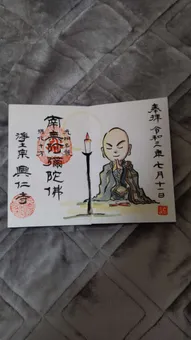 奉拝 令和三年七月十一日
南無阿彌陀佛
浄土宗 興仁寺